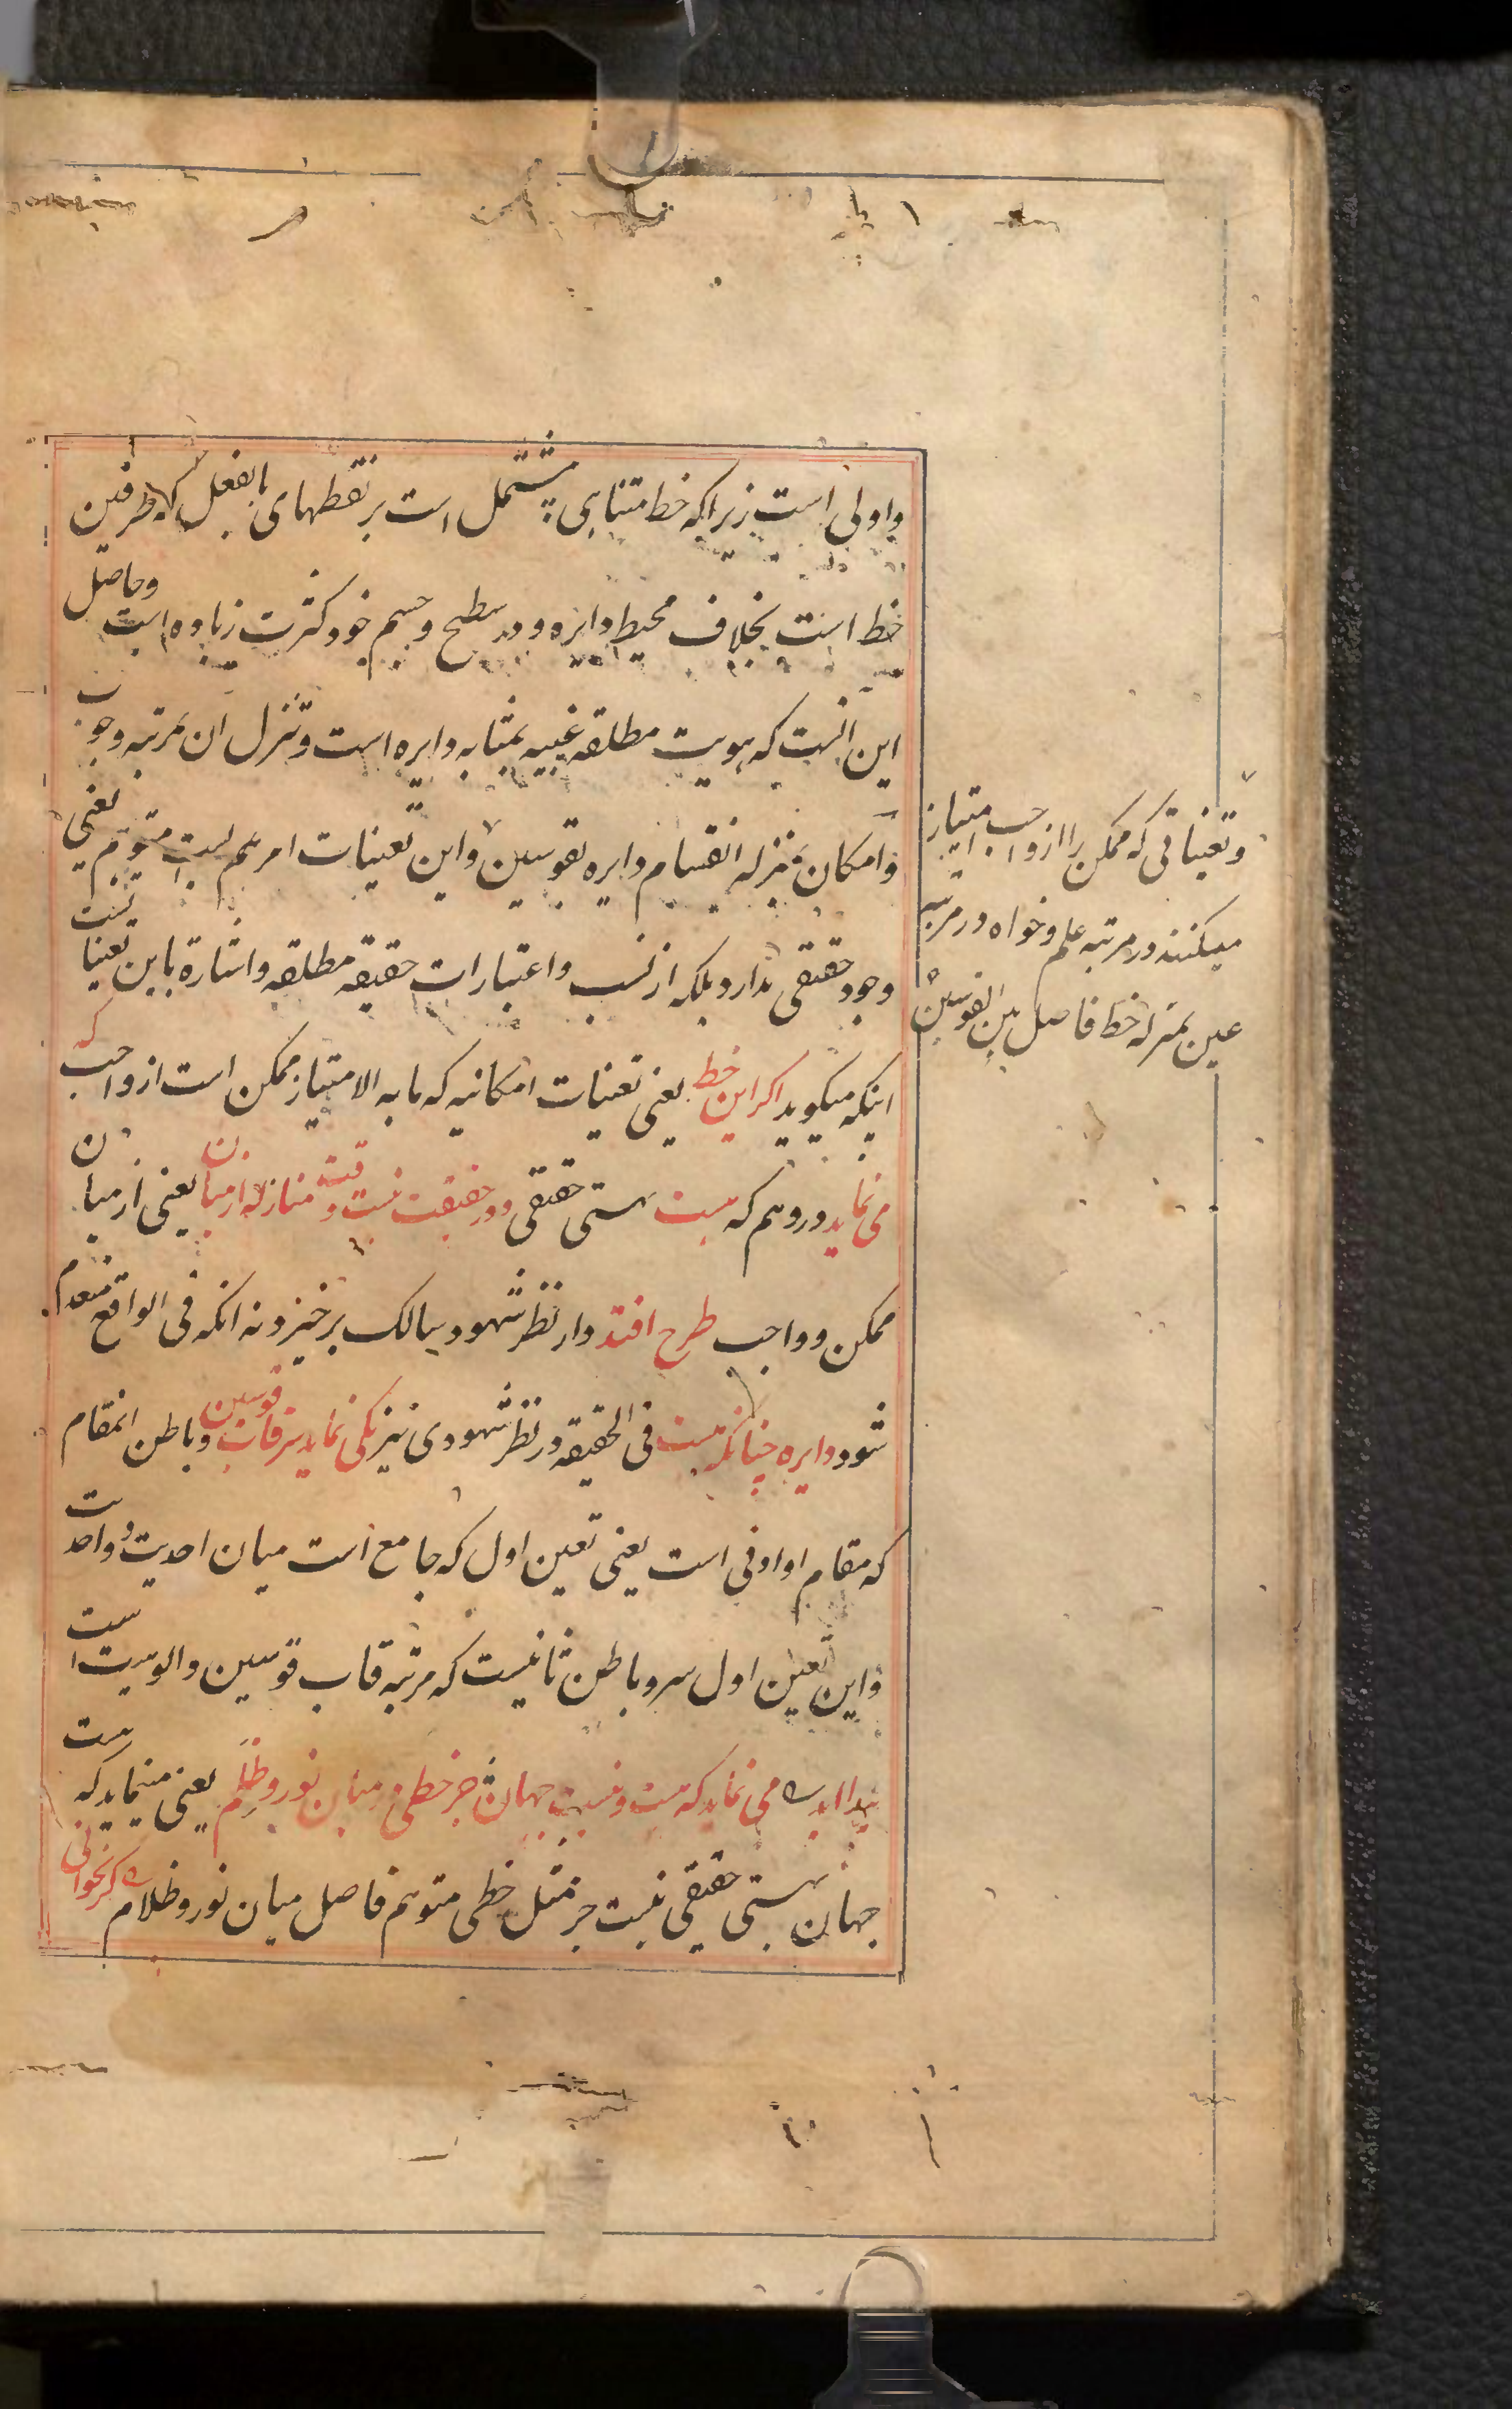 و اولی است زیرا که خط متناهی مشتمل است بر نقطهای بالفعل که طرفین
خط است بخلاف محیط دایره و در سطح و جسم خود کثرت زیاده است و حاصل
این انست که هویت مطلقه غیبیه بمثابه دایره است و تنزل ان بمرتبه وجوب
و امکان بمنزله انقسام دایره بقوسین و این تعینات امر هم لیست متوهم یعنی
وجود حقیقی ندارد بلکه از نسب و اعتبارات حقیقه مطلقه و اشارة باین تعینا تست
اینکه میکوید اکر این خط یعنی تعینات امکانیه که ما به الامتیاز ممکن است از واجب که
می نماید در وهم که هست هستی حقیقی و در حقیقت نیست وقت منازله از میان یعنی از میان
ممکن و واجب طرح افتد و از نظر شهود سالک برخیزد نه انکه فی الواقع منعدم
شود دایره چنانکه هست فی الحقیقه در نظر شهودی نیز یکی نماید سر قاب قوسین و باطن انمقام
که مقام او ادنی است یعنی تعین اول که جامع است میان احدیت و واحدیت
و این تعین اول سر و باطن ثانیست که مرتبه قاب قوسین و الوهیت است
پیدا اید می نماید که هست و نیست جهان جز خطی در میان نور و ظلم یعنی مینماید که هست
جهان هستی حقیقی نیست جز مثل خطی متوهم فاصل میان نور و ظلام کر بخوانی
و تعیناتی که ممکن را از واجب امتیاز
میکنند در مرتبه علم و خواه در مرتبه
عین بمنزله خط فاصل بین القوسین